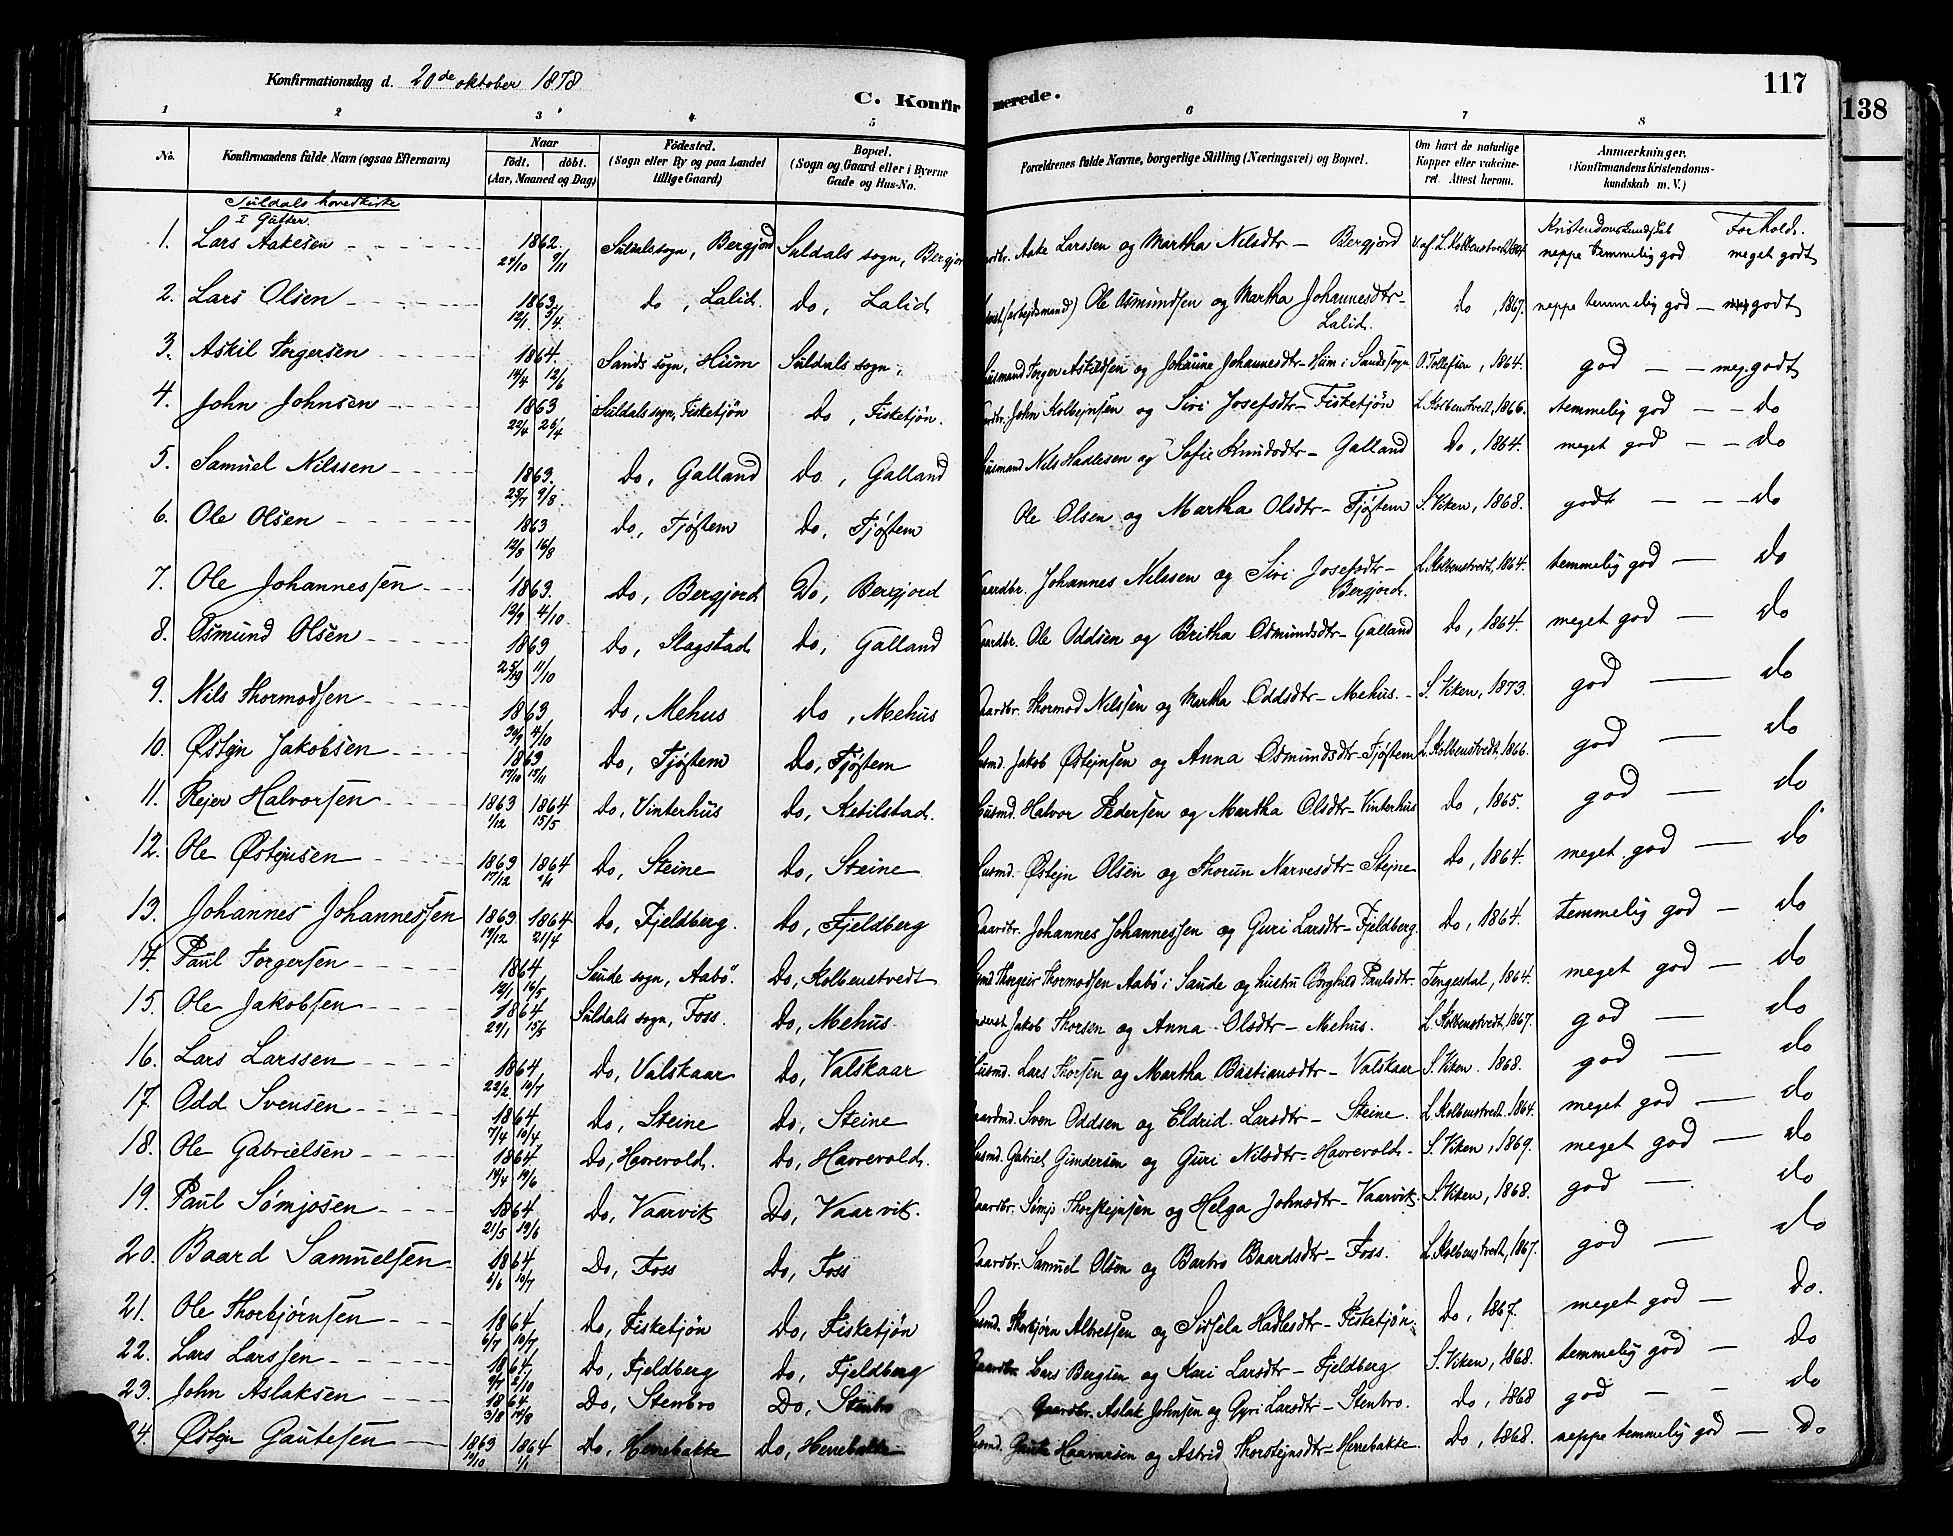 Konfirmationsdag d. 20de oktober 1878
C. Konfirmerede.
117
138
1 2 3 4 5 6 7 8
No. Konfirmandens fulde Navn (ogsaa Efternavn) Naar født. døbt. (Aar, Maaned og Dag) Fødested. (Sogn eller By og paa Landet tillige Gaard) Bopæl. (Sogn og Gaard eller i Byerne Gade og Hus-No. Forældrenes fulde Navne, borgerlige Stilling (Næringsvei) og Bopæl. Om havt de naturlige Kopper eller vakcineret. Attest herom. Anmærkninger. (Konfirmandens Kristendomskundskab m. V.)
Suldals hovedkirke
I Gutter
Kristendomskundskab Forhold.
1. Lars Aakesen 1862 24/10 9/11 Suldals sogn, Bergjord Suldals sogn, Bergjor Aake Larssen og Martha Nilsdtr – Bergjord v. af L. Kolbenstvedt, 1864 neppe temmelig god meget godt
2. Lars Olsen 1863 12/1 5/4 do, Lalid. do, Lalid (arbejdsmand) Ole Osmundsen og Martha Johannesdtr – Lalid. do, 1867. neppe temmelig god – godt
3. Askil Torgersen 1864. 14/4 12/6 Sands sogn, Hiim Suldals sogn, Husmand Torger Askildsen og Johanne Johannesdtr – Hiim i Sands sogn O. Tollefsen, 1864. god – – meg. godt
4. John Johnsen 1863 22/4 26/4 Suldals sogn, Fisketjøn do, Fisketjøn. John Kolbejnsen og Siri Josefsdtr – Fisketjøn L. Kolbenstvedt, 1866. temmelig god – – do
5. Samuel Nilssen 1863. 25/7 9/8 do, Galland do, Galland Husmand Nils Hadlesen og Sofie Knudsdtr – Galland do, 1864. meget god – – do
6. Ole Olsen 1863 12/8 16/8 do, Tjøstem do, Tjøstem Ole Olsen og Martha Olsdtr – Tjøstem S. Viken, 1868. godt – – do
7. Ole Johannessen 1863. 12/9 4/10 do, Bergjord do, Bergjord Gaardbr. Johannes Nilssen og Siri Josefsdtr – Bergjord. L. Kolbenstvedt, 1864. temmelig god – do
8. Osmund Olsen 1863 25/9 11/10 do, Slagstad do, Galland Gaardbr. Ole Oddsen og Britha Osmundsdtr – Galland do, 1864. meget god – do
9. Nils Thormodsen 1863 30/9 4/10 do, Mehus do, Mehus Gaardbr. Thormod Nilssen og Martha Oddsdtr – Mehus. – S. Viken, 1873. god – do
10. Østejn Jakobsen 1863 17/10 15/11 do, Tjøstem do, Tjøstem Husmd. Jakob Østejnsen og Anna Osmundsdtr – Tjøstem L. Kolbenstvedt, 1866. god – do
11. Rejer Halvorsen 1863 1/12 1864 15/5 do, Vinterhus do, Ketilstad. Husmd. Halvor Pedersen og Martha Olsdtr – Vinterhus do, 1865. god – do
12. Ole Østejnsen 1863 17/12 1864 do, Steine do, Steine Husmd. Østejn Olsen og Thorun Narvesdtr – Stejne do, 1864. meget god – do
13. Johannes Johannessen 1863 19/12 1864 21/4 do, Fjeldberg. do, Fjeldberg Gaardbr. Johannes Johannessen og Guri Larsdtr – Fjeldberg. do, 1864. temmelig god – do
14. Paul Torgersen 1864 12/1 16/5 Saude sogn, Aabø. do, Kolbenstvedt Thorgeir Thormodsen Aabø i Saude og hustru Borghild Paulsdtr. Tengesdal, 1864. meget god – do
15. Ole Jakobsen 1864 29/1 15/5 Suldals sogn, Foss. do, Mehus. Jakob Thorsen og Anna Olsdtr – Mehus. L. Kolbenstvedt, 1867. god – do
16. Lars Larssen 1864, 22/2 10/7 do, Valskaar do, Valskaar Husmd. Lars Thorsen og Martha Bastiansdtr – Valskaar S. Viken. 1868. god – do
17. Odd Svensen 1864 7/4 10/4 do, Steine do, Steine Gaardmd. Sven Oddsen og Eldrid Larsdtr – Steine. L. Kolbenstvedt, 1864. meget god – do
18. Ole Gabrielsen 1864 14/4 19/6 do, Havrevold. do, Havrevold. Husmd. Gabriel Gundersen og Guri Nilsdtr – Havrevold – S. Viken, 1869. meget god – do
19. Paul Sømjosen 1864 21/5 19/6 do, Vaarvik do, Vaarvik. Gaardbr. Sømjo Thorstejnsen og Helga Johnsdtr – Vaarvik. S. Viken, 1868. god – do
20. Baard Samuelsen 1864, 2/6 10/7 do, Foss do, Foss Gaardbr. Samuel Olsen og Barbro Baardsdtr – Foss. L. Kolbenstvedt, 1867. god – do
21. Ole Thorbjørnsen 1864, 6/7 10/7, do, Fisketjøn do, Fisketjøn Husmd. Thorbjørn Albretsen og Sissela Hadlesdtr – Fisketjøn. do, 1867. meget god – do.
22. Lars Larssen 1864, 9/7 2/10 do, Fjeldberg do, Fjeldberg Gaardbr. Lars Bergsen og Kari Larsdtr – Fjeldberg S. Viken, 1868. temmelig god – do
23. John Aslaksen 1864 3/8 14/8 do, Stenbro do, Stenbro Gaardbr. Aslak Johnsen og Gyri Larsdtr – Stenbro. do, 1868 god – – do
24. Østejn Gautesen 1863 19/10 1864 1/1 do, Herrebakke do, Herrebakke Husmd. Gaute Haavarsen og Astrid Thorstejnsdtr – Herrebakke. do, 1868. neppe temmelig god – do